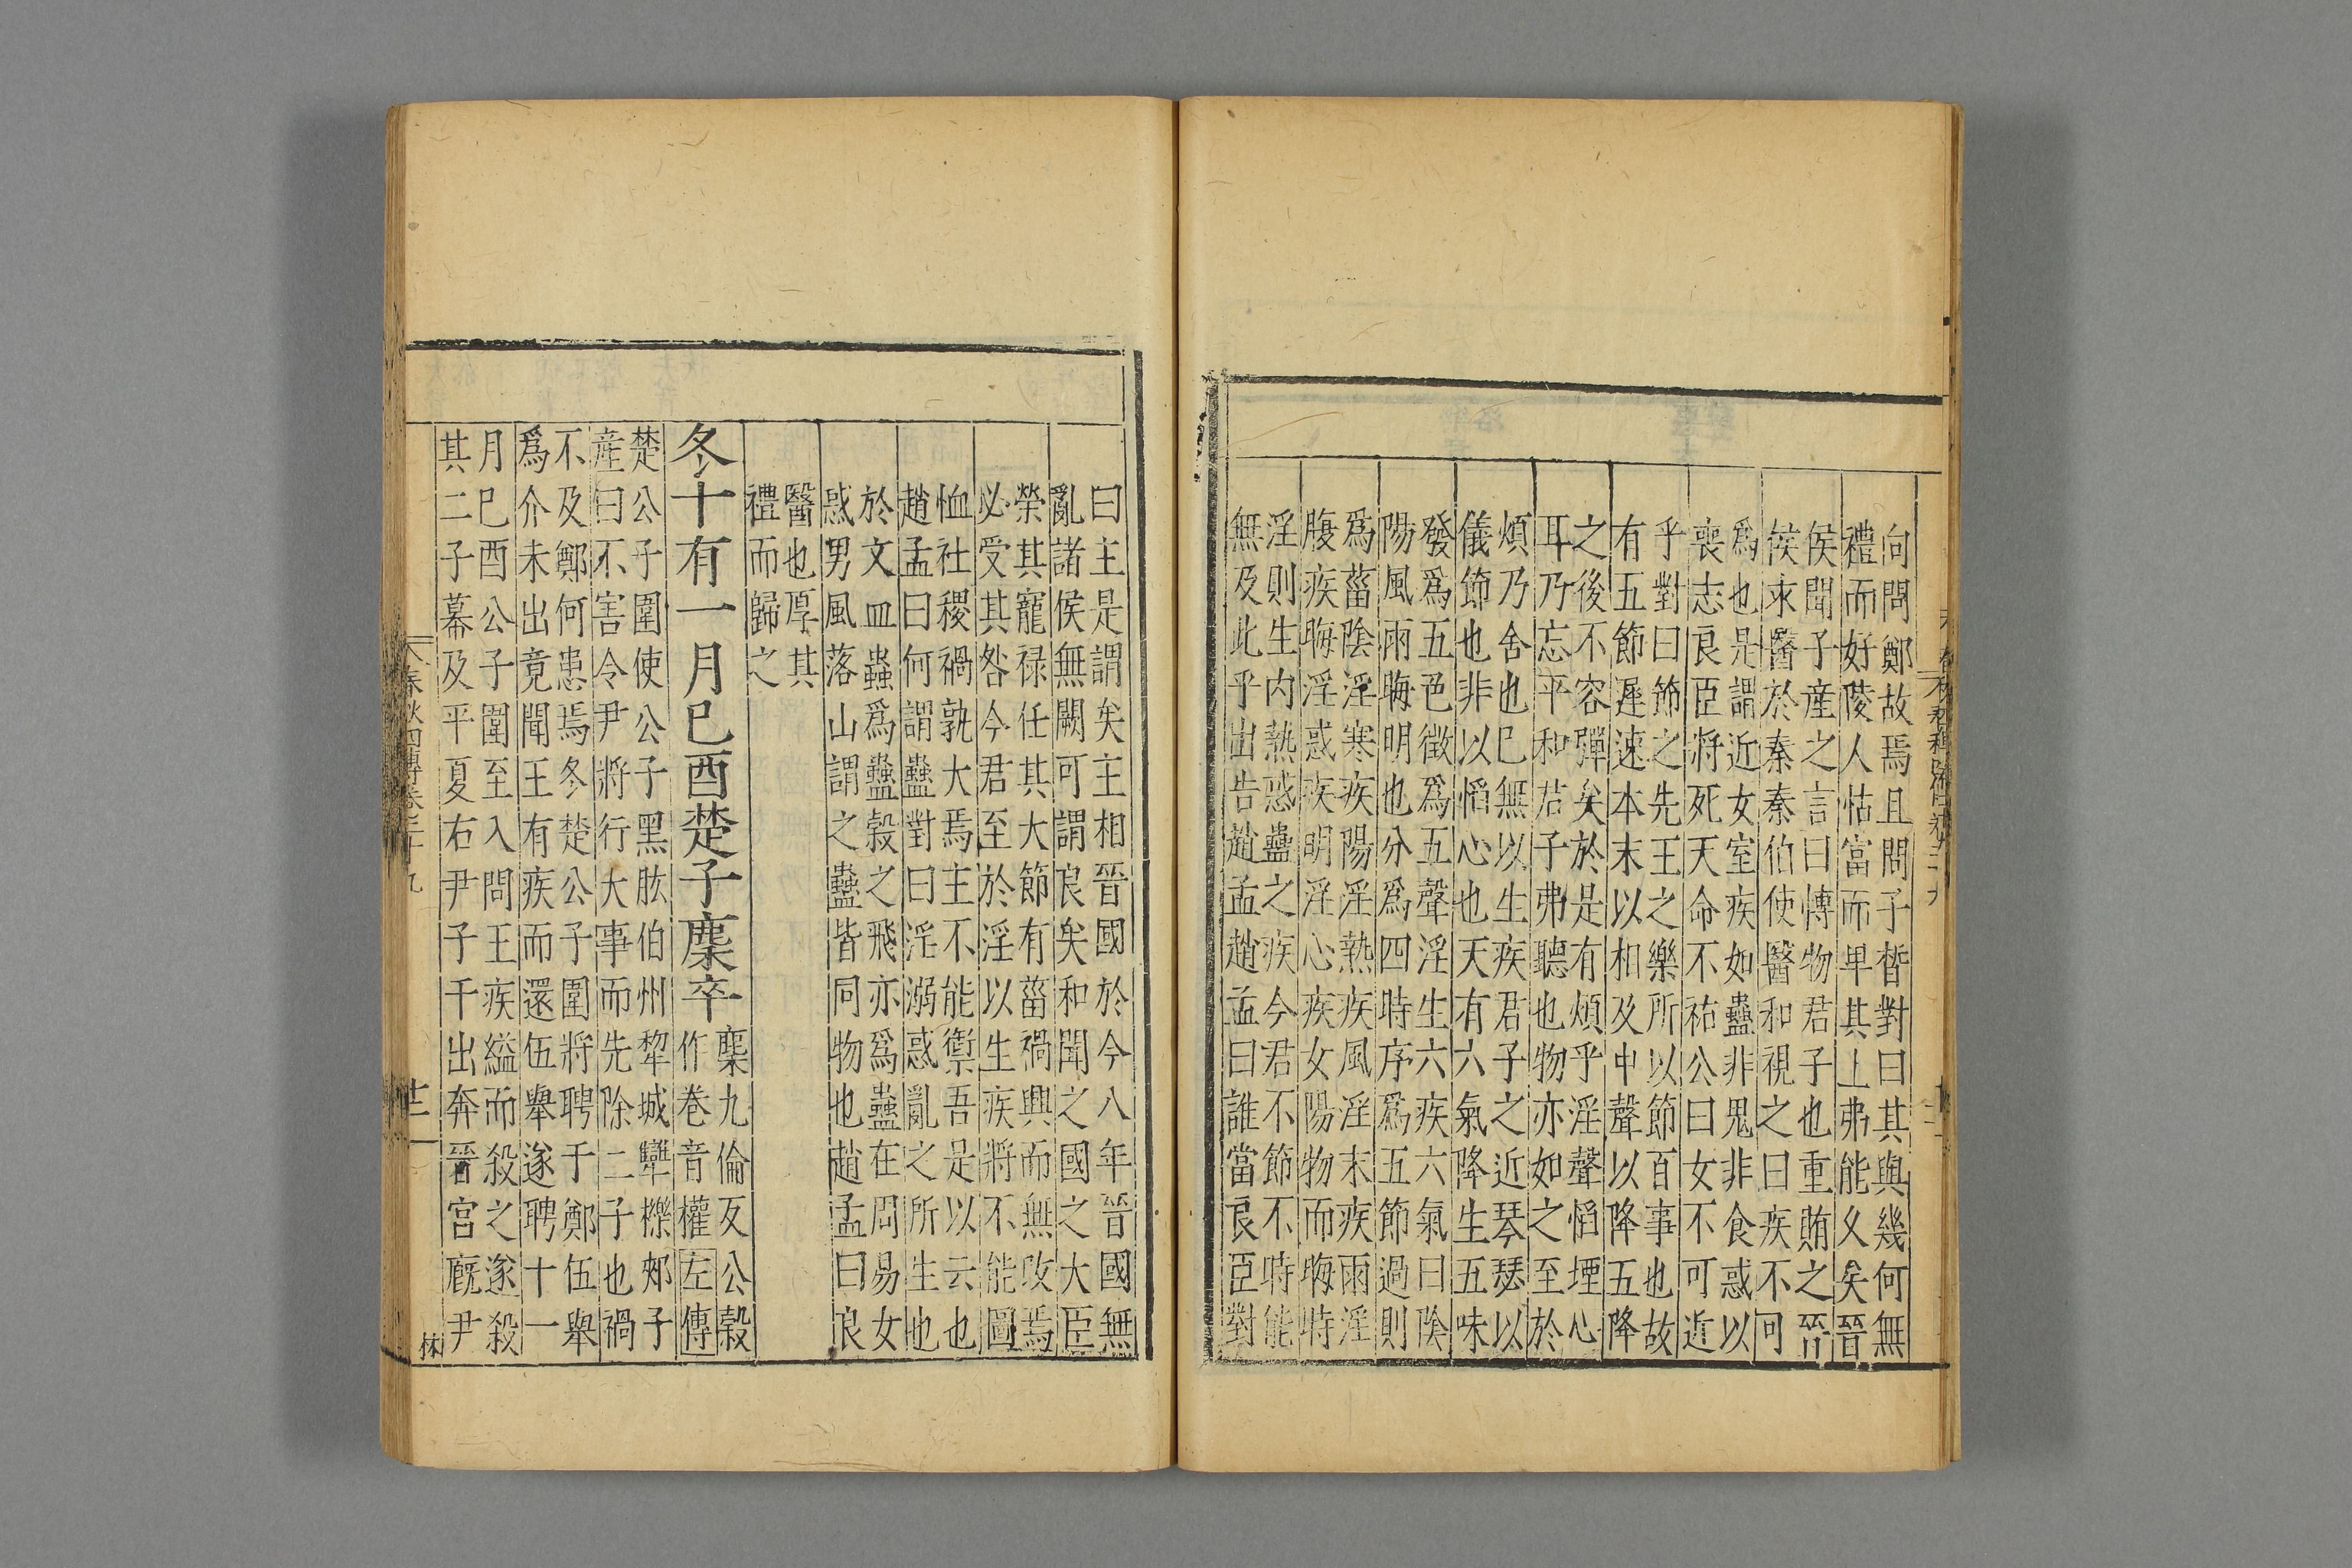 向問鄭故焉且問子晳對曰其與幾何無
禮而好陵人怙富而卑其上弗能久矣晉
侯聞子產之言曰愽物君子也重賄之晉
侯求醫於秦秦伯使醫和視之曰疾不可
爲也是謂近女室疾如蠱非鬼非食惑以
喪志良臣將死天命不祐公曰女不可近
乎對曰節之先王之樂所以節百事也故
有五節遲速本末以相及中聲以降五降
之後不容彈矣於是有煩乎淫聲慆堙心
耳乃忘平和君子弗聽也物亦如之至於
煩乃舍也已無以生疾君子之近琴瑟以
儀節也非以慆心也天有六氣降生五味
發爲五色徵爲五聲淫生六疾六氣曰陰
陽風雨晦明也分爲四時序爲五節過則
爲菑陰淫寒疾陽淫熱疾風淫末疾雨淫
腹疾晦淫惑疾明淫心疾女陽物而晦時
淫則生内熱惑蠱之疾今君不節不時能
無及此乎出告趙孟趙孟曰誰當良臣對
曰主是謂矣主相晉國於今八年晉國無
亂諸侯無闕可謂良矣和聞之國之大臣
榮其寵祿任其大節有菑禍興而無攺焉
必受其咎今君至於淫以生疾將不能圖
恤社稷禍孰大焉主不能禦吾是以云也
趙孟曰何謂蠱對曰淫溺惑亂之所生也
於文皿蟲爲蠱穀之飛亦爲蠱在周易女
惑男風落山謂之蠱皆同物也趙孟曰良
醫也厚其
禮而歸之
冬十有一月巳酉楚子麇卒
麇九倫反公穀
作卷音權左傳
楚公子圍使公子黑肱伯州犁城犨櫟郟子
産曰不害令尹將行大事而先除二子也禍
不及鄭何患焉冬楚公子圍將聘于鄭伍舉
爲介未出竟聞王有疾而還伍舉遂聘十一
月巳酉公子圍至入問王疾縊而殺之遂殺
其二子幕及平夏右尹子干出奔晉宫廐尹
春秋四傳卷二十九
林